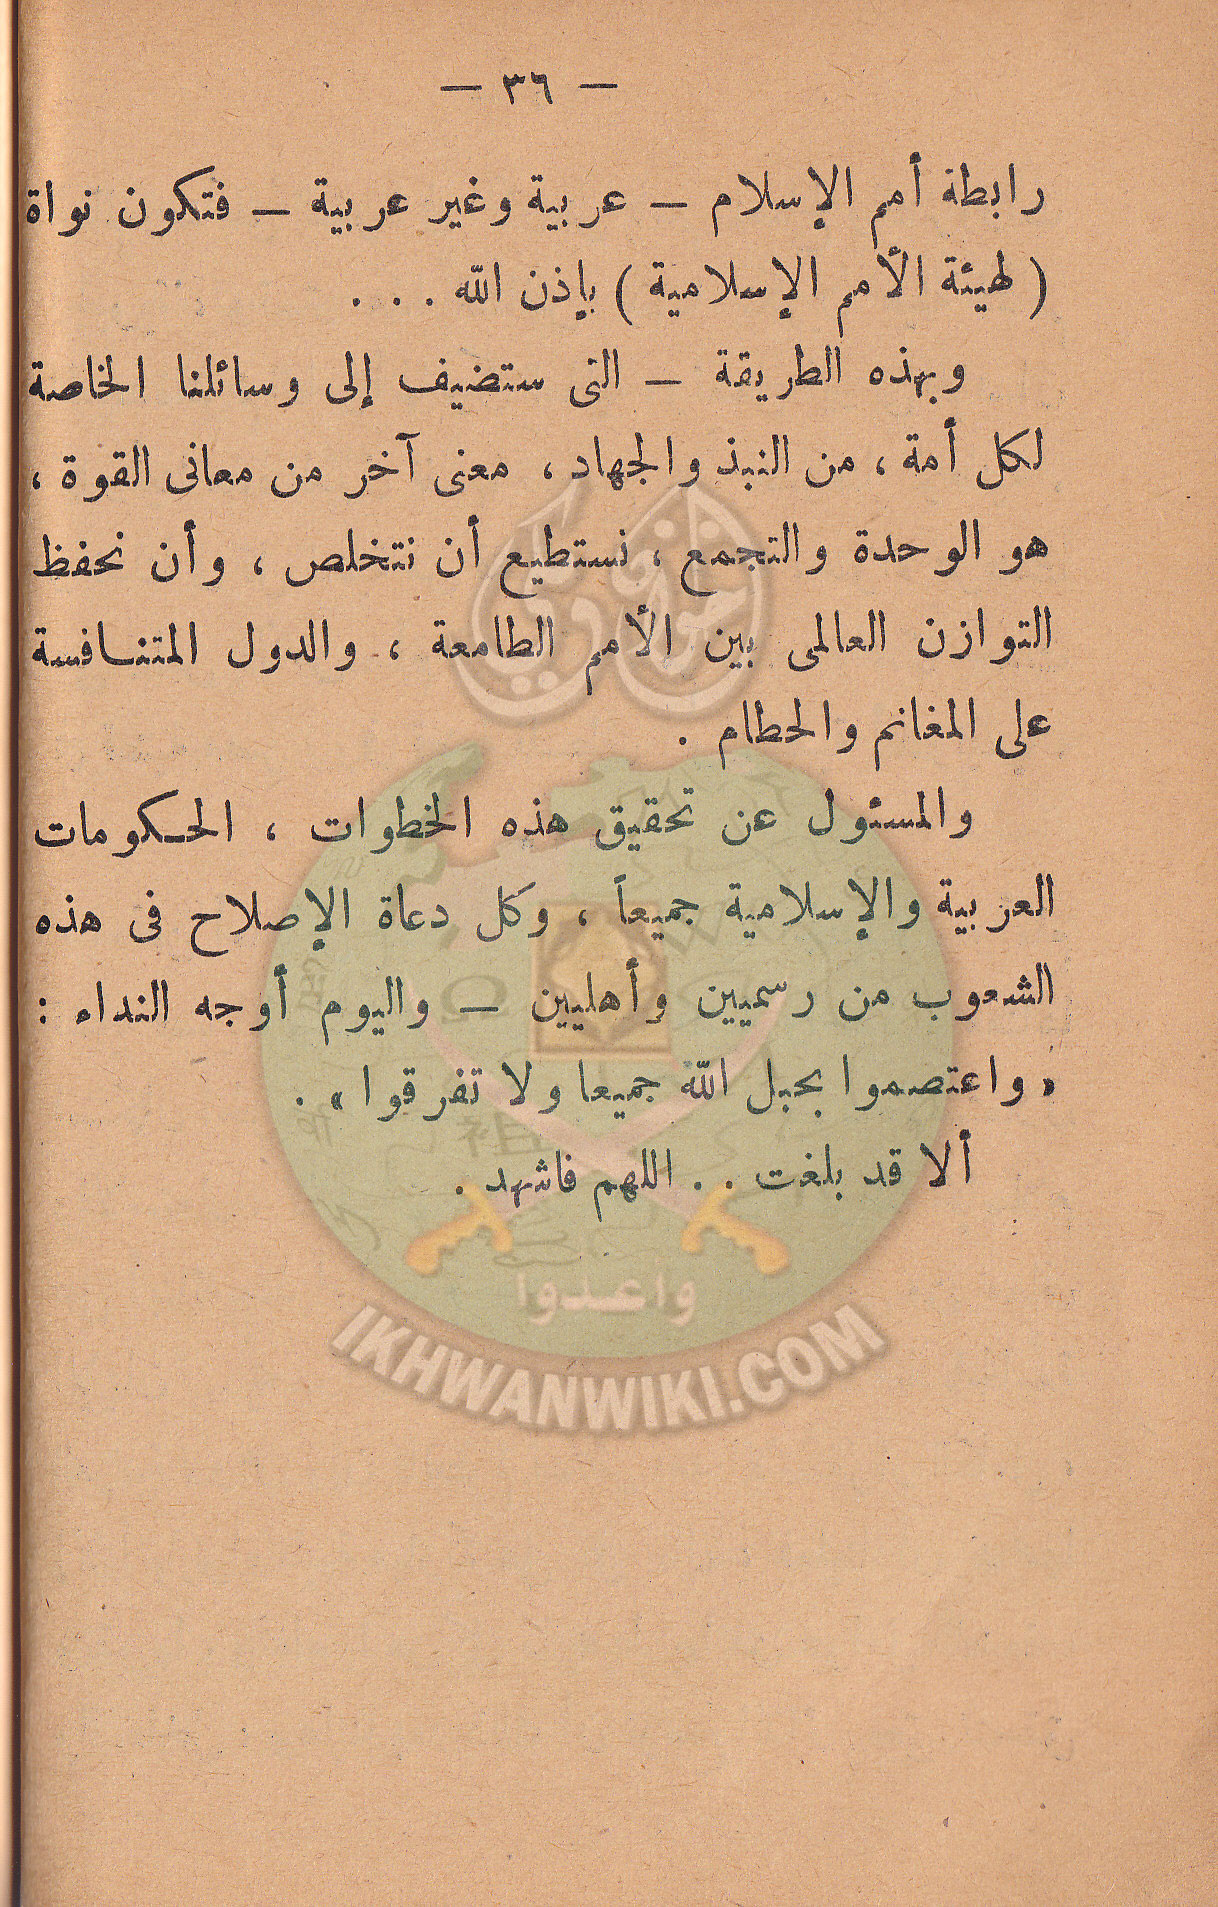 — ٣٦ —
رابطة أمم الإسلام — عربية وغير عربية — فتكون نواة
( لهيئة الأمم الإسلامية ) بإذن الله . . .
وبهذه الطريقة — التى ستضيف إلى وسائلنا الخاصة
لكل أمة ، من النبذ والجهاد ، معنى آخر من معانى القوة ،
هو الوحدة والتجمع ، نستطيع أن نتخلص ، وأن نحفظ
التوازن العالمى بين الأمم الطامعة ، والدول المتنافسة
على المغانم والحطام .
والمسئول عن تحقيق هذه الخطوات ، الحكومات
العربية والإسلامية جميعاً ، وكل دعاة الإصلاح فى هذه
الشعوب من رسميين وأهليين — واليوم أوجه النداء :
« واعتصموا بحبل الله جميعا ولا تفرقوا » .
ألا قد بلغت . . اللهم فاشهد .
إخوان ويكي
وأعدوا
IKHWANWIKI.COM